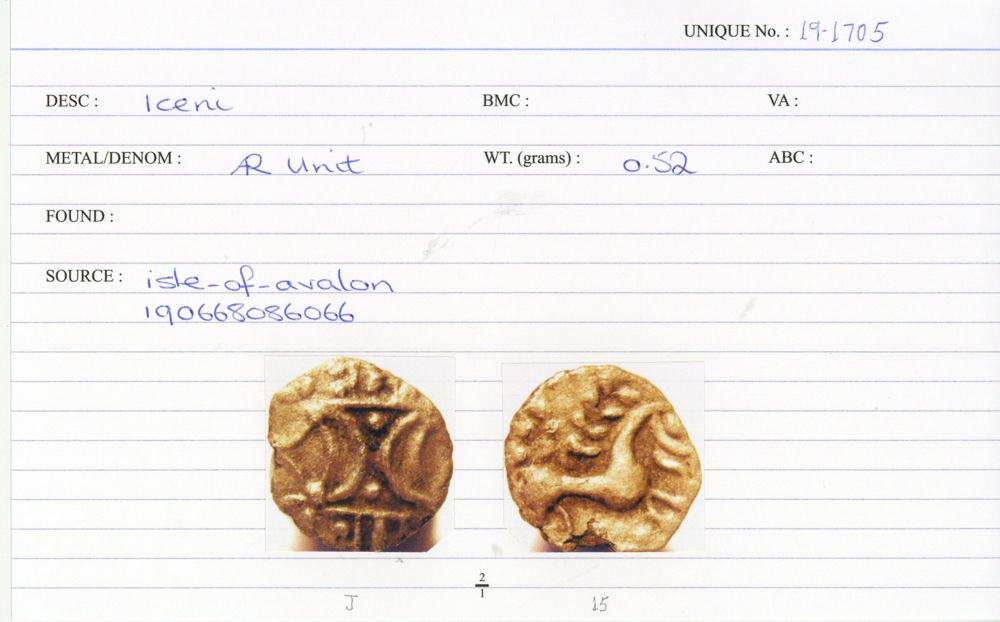 UNIQUE No. : 19-1705
DESC : Iceni BMC : VA :
METAL/DENOM : AR Unit WT. (grams) : 0.52 ABC :
FOUND :
SOURCE : isle-of-avalon
190668086066
2
1
J 15